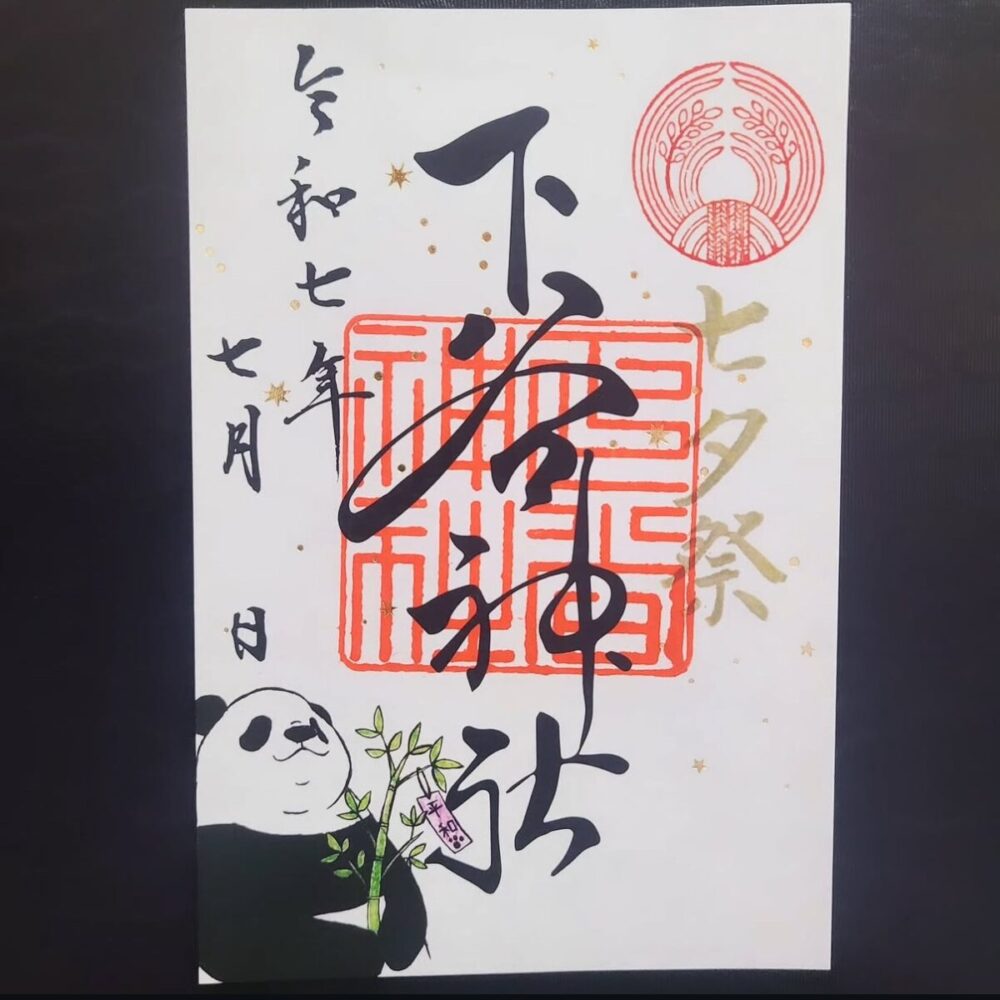 七夕祭
下谷神社
下谷神社
令和七年
七月 日
平和